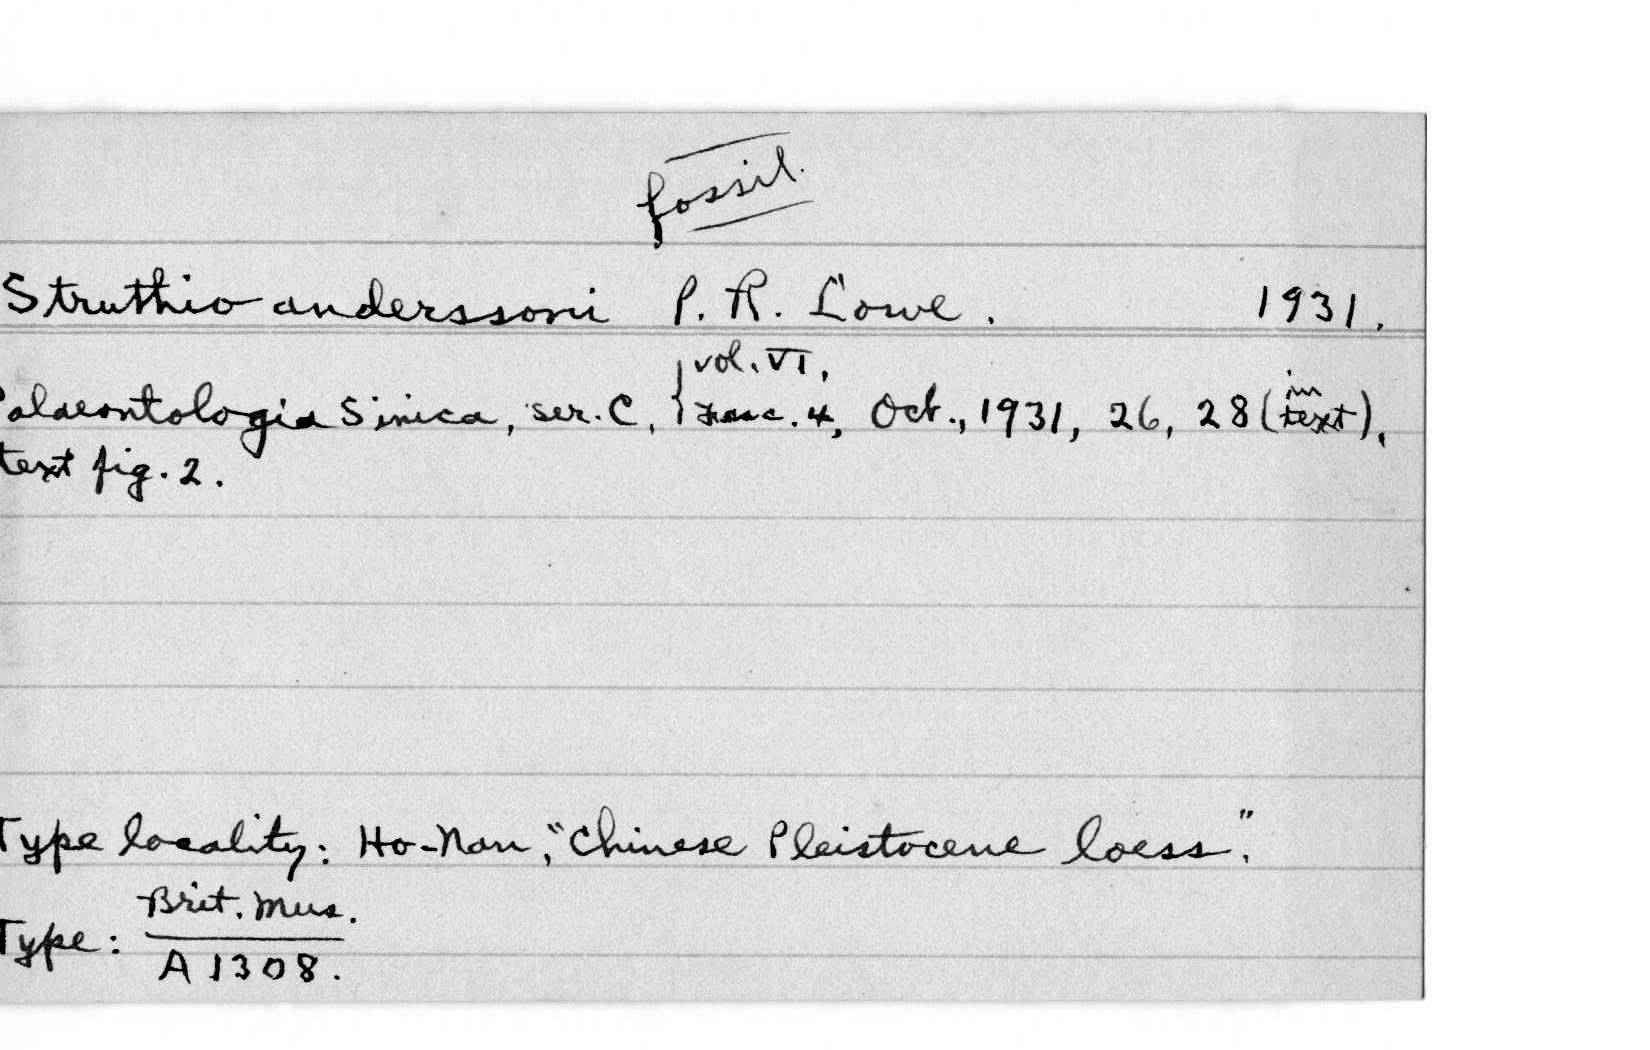 fossil.
Struthio anderssoni P. R. Lowe. 1931.
vol. VI,
Palaeontologia Sinica, ser. C, { Fasc. 4, Oct., 1931, 26, 28 (in text),
text fig. 2.
Type locality: Ho-Nan, "Chinese Pleistocene loess".
Brit. Mus.
Type:
A 1308.